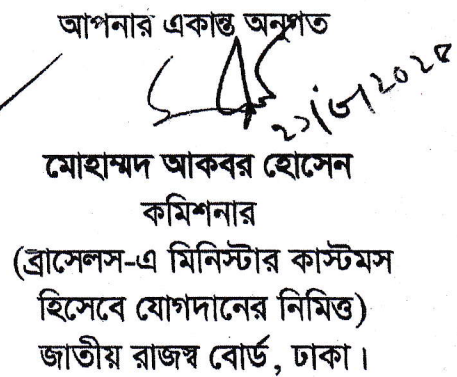 আপনার একান্ত অনুগত
মোহাম্মদ আকবর হোসেন
কমিশনার
(ব্রাসেলস-এ মিনিস্টার কাস্টমস
হিসেবে যোগদানের নিমিত্ত)
জাতীয় রাজস্ব বোর্ড, ঢাকা।